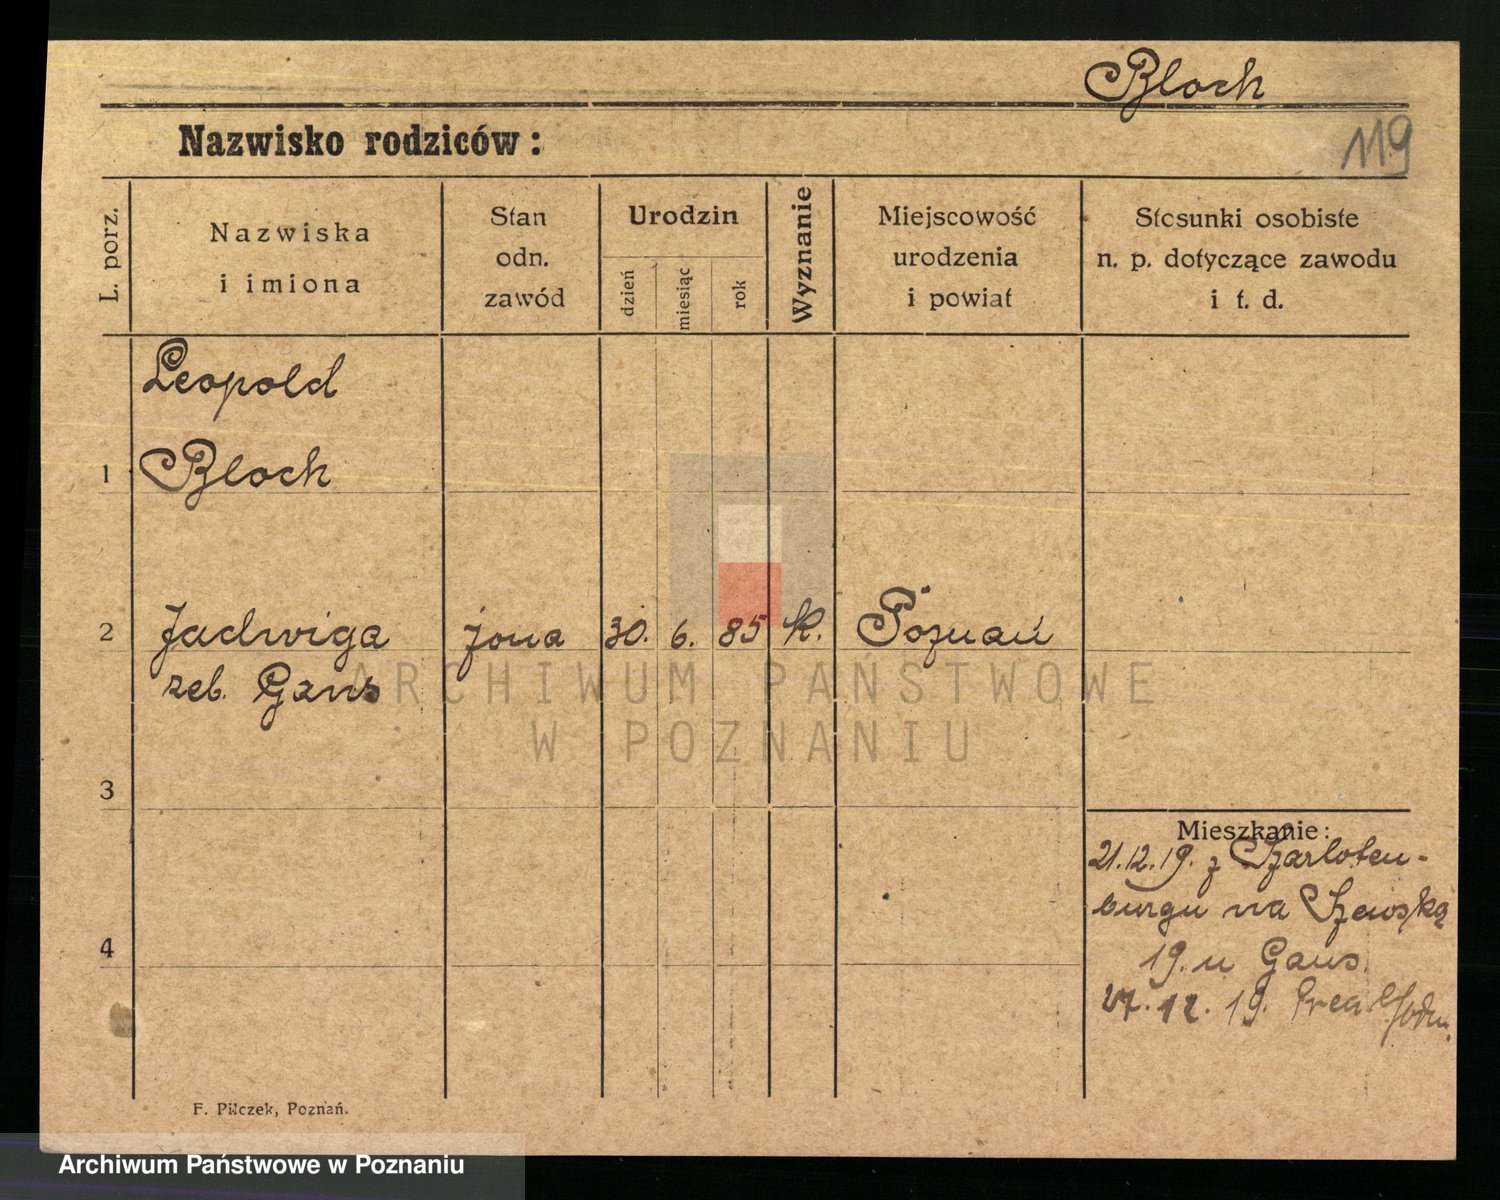 Bloch
119
Nazwisko rodziców:
L. porz.
Nazwiska
i imiona
Stan
odn.
zawód
Urodzin
dzień
miesiąc
rok
Wyznanie
Miejscowość
urodzenia
i powiat
Stosunki osobiste
n. p. dotyczące zawodu
i t. d.
Leopold
1 Bloch
2 Jadwiga żona 30. 6. 85 k. Poznań
zeb. Gans
ARCHIWUM PAŃSTWOWE
W POZNANIU
3
Mieszkanie:
21.12.19. z Szarloten-
burgu na Szewską
4
19. u Gans.
27.12.19.
F. Pilczek, Poznań.
Archiwum Państwowe w Poznaniu